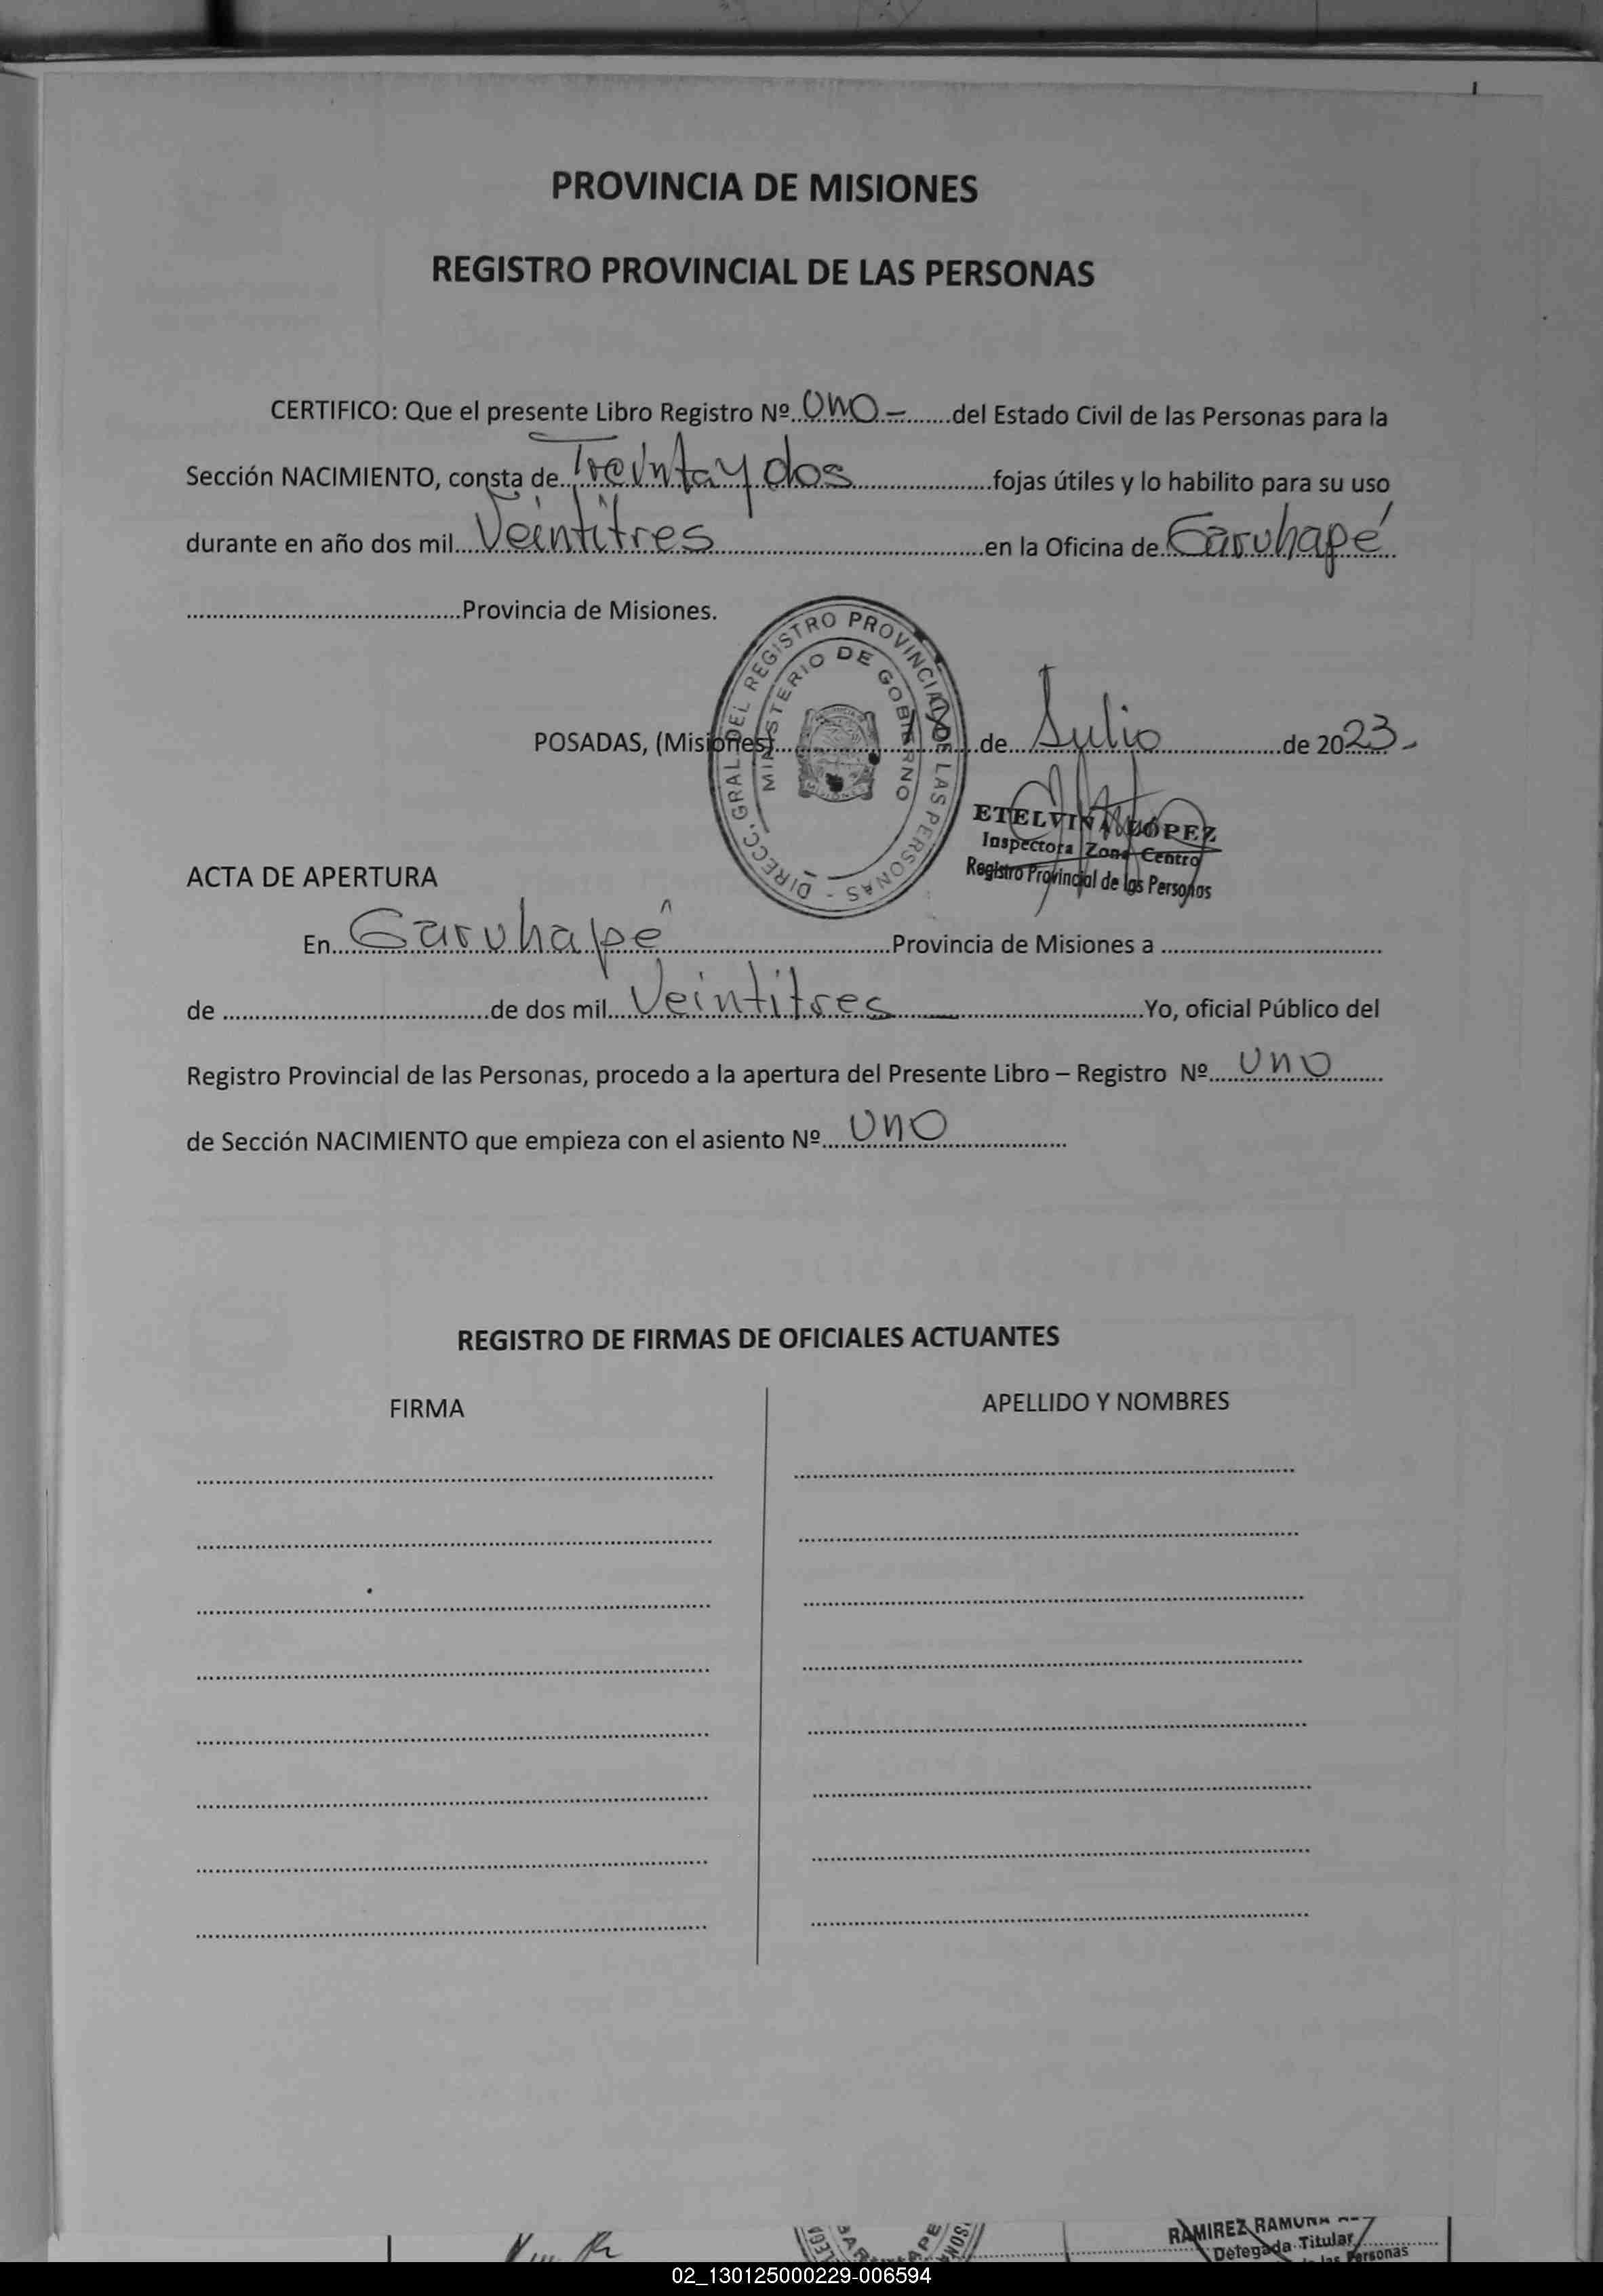 PROVINCIA DE MISIONES
REGISTRO PROVINCIAL DE LAS PERSONAS
CERTIFICO: Que el presente Libro Registro Nº..UNO-........del Estado Civil de las Personas para la
Sección NACIMIENTO, consta de..Treinta y dos......................fojas útiles y lo habilito para su uso
durante en año dos mil....Veintitres..........................................en la Oficina de.Garuhapé..
..........................................Provincia de Misiones.
DIRECC. GRAL. DEL REGISTRO PROVINCIAL DE LAS PERSONAS -
MINISTERIO DE GOBIERNO
POSADAS, (Misiones)..............................de...Julio...................de 2023.-
ETELVINA LÓPEZ
Inspectora Zona Centro
Registro Provincial de las Personas
ACTA DE APERTURA
En...Garuhapé...................................Provincia de Misiones a ..................................
de .........................................de dos mil...Veintitres.......................................Yo, oficial Público del
Registro Provincial de las Personas, procedo a la apertura del Presente Libro – Registro Nº.....UNO........
de Sección NACIMIENTO que empieza con el asiento Nº....UNO...................
REGISTRO DE FIRMAS DE OFICIALES ACTUANTES
FIRMA APELLIDO Y NOMBRES
RAMIREZ RAMONA
Delegada Titular
las Personas
02_130125000229-006594